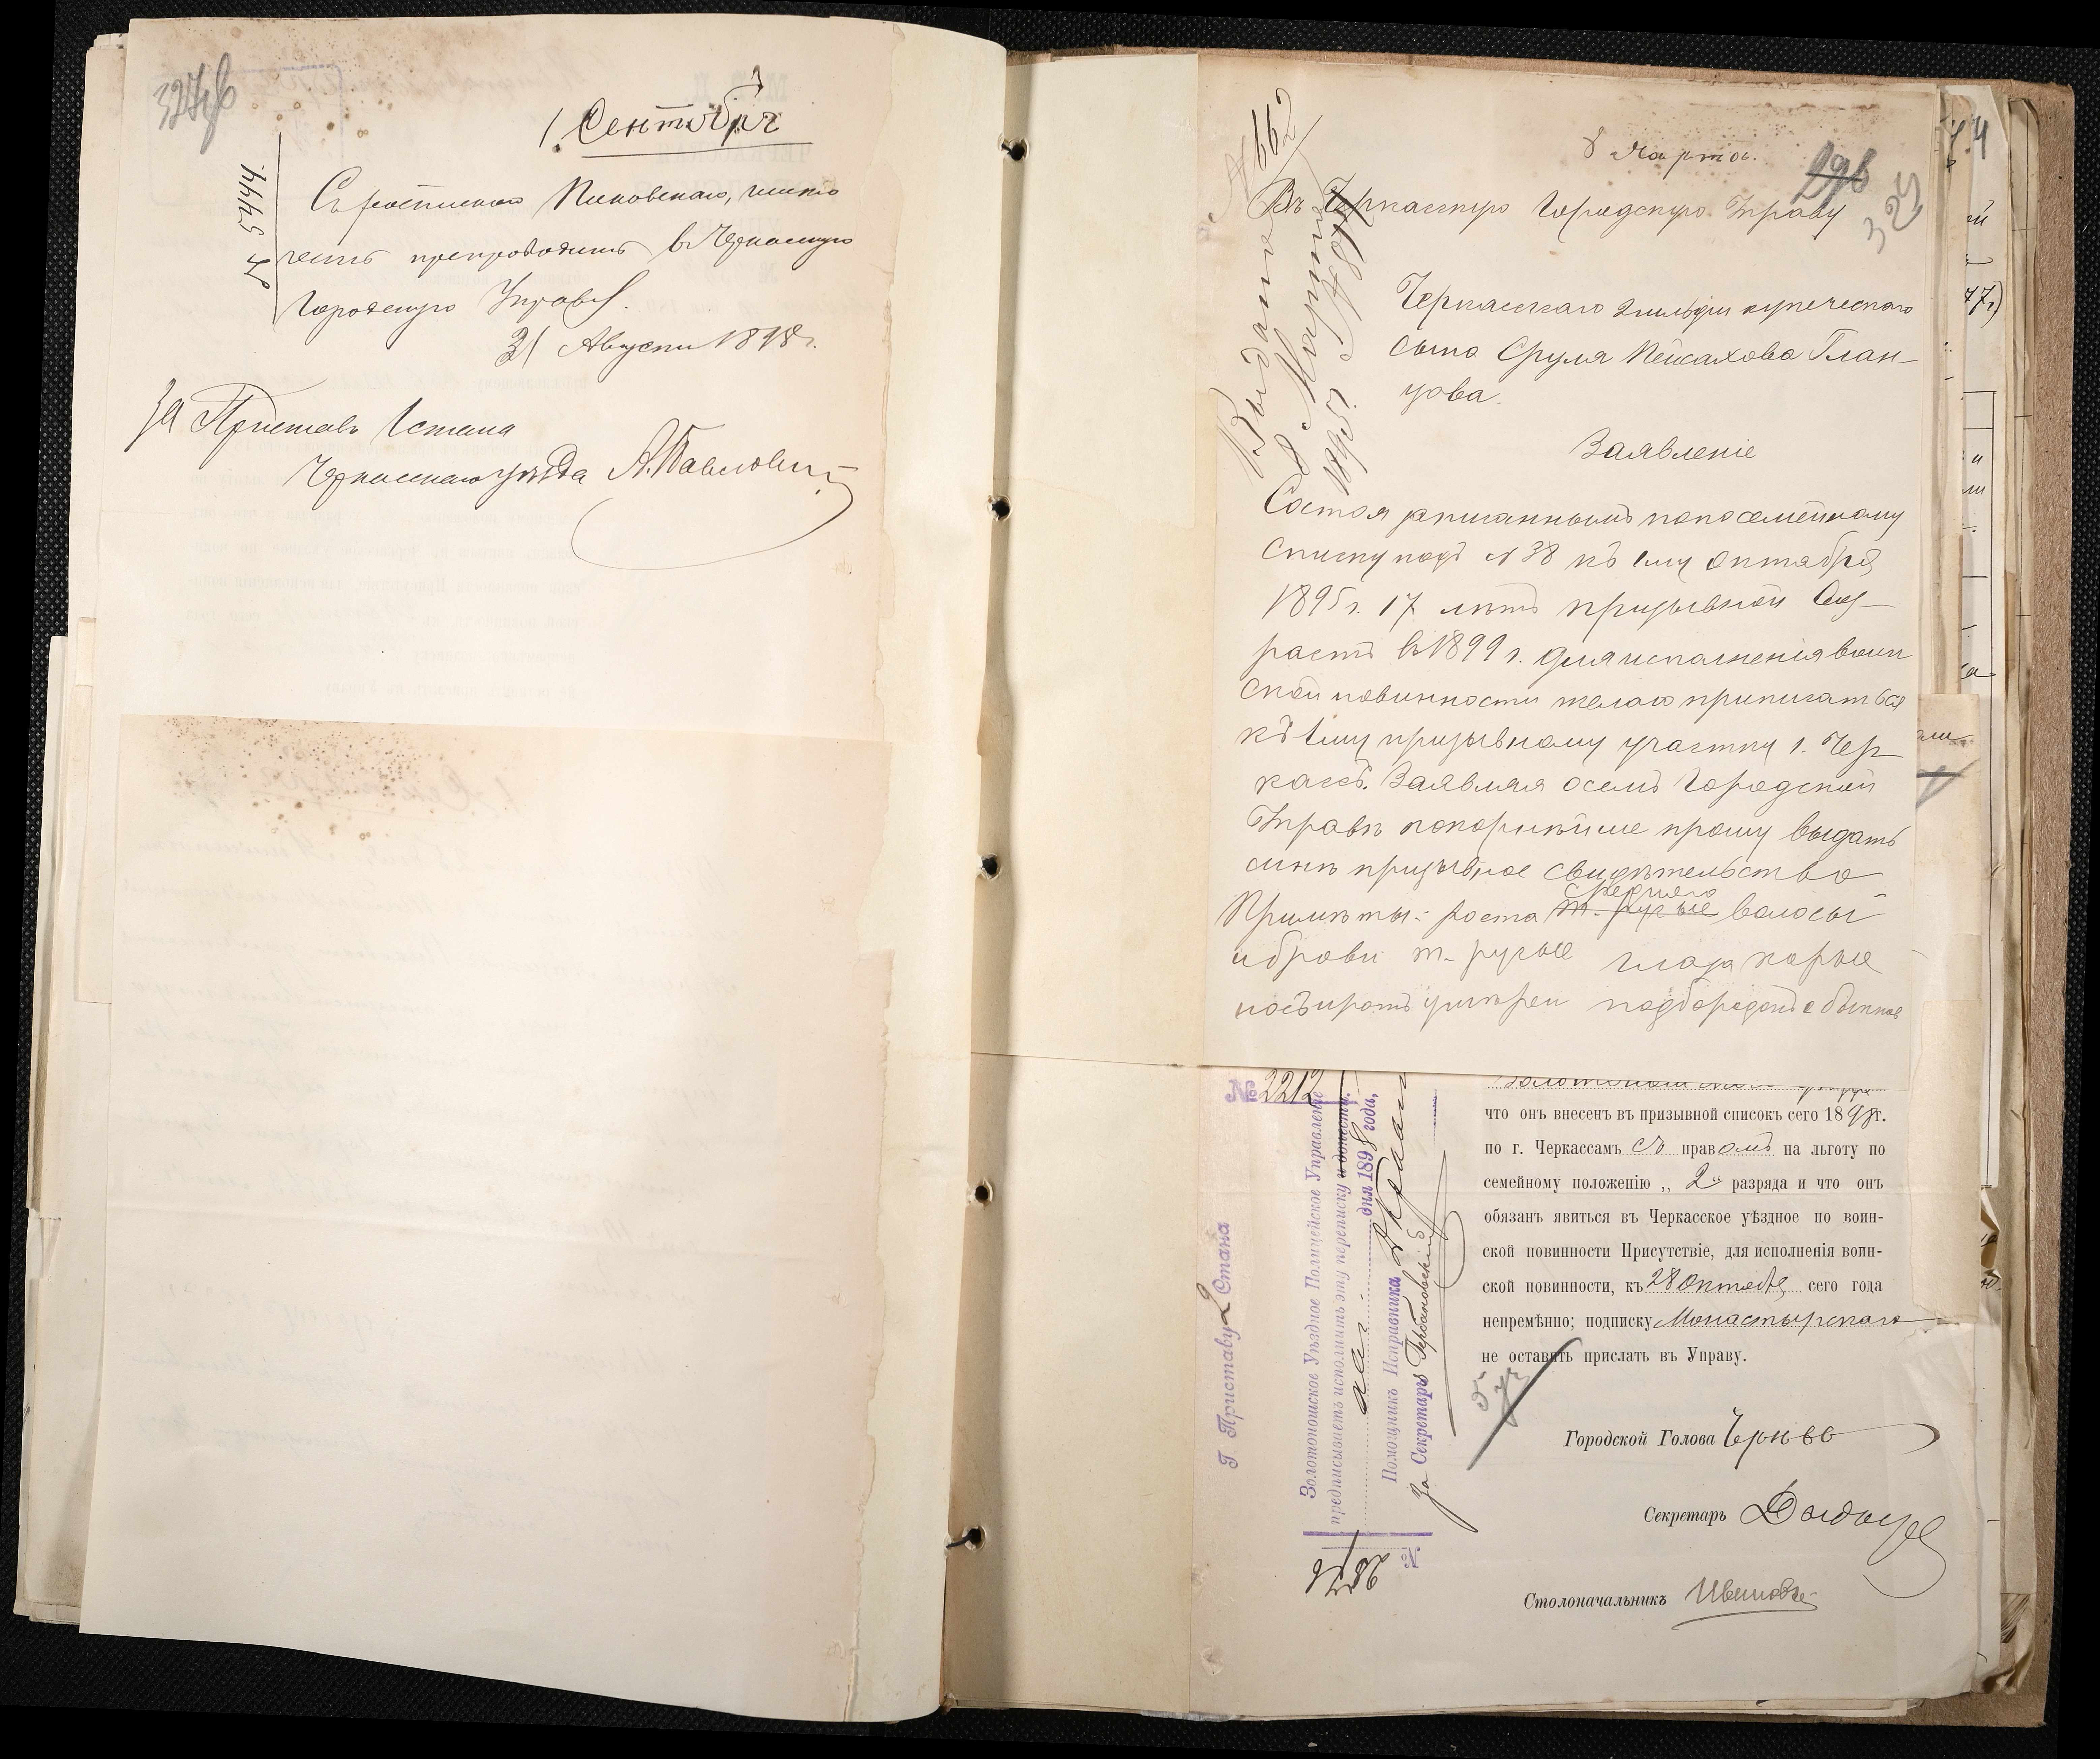 1 Сентября
№ 5444
Съ роспискою Пиковскаго,
препроводить въ Черкасскую
Городскую Управу.
31 Августа 1898 г.
За Пристава 1 стана
Черкасскаго уѣзда А. Павловичъ
8 Марта.
296
325
№ 662
Въ Черкасскую Городскую Управу
Выдано
8 Марта
1895 г.
Черкасскаго 2 гильдіи купеческаго
сына Сруля Пейсахова Глан-
цова.
Заявленіе
Состоя записаннымъ по посемейному
списку подъ № 38 къ 1му Октября
1895 г. 17 лѣтъ призывной Воз-
растъ въ 1899 г. для исполненія воин
ской повинности желаю приписаться
къ 1му призывному участку г. Чер-
кассъ. Заявляя о семъ Городской
Управѣ покорнѣйше прошу выдать
мнѣ призывное свидѣтельство
Примѣты: роста средняго волосы
и брови т-русые глаза карые
носъ и ротъ умѣрен подбородокъ обыкнов
№ 2212
Золотоношскаго уѣзда
что онъ внесенъ въ призывной списокъ сего 1898 г.
по г. Черкассамъ съ правомъ на льготу по
семейному положенію „ 2" разряда и что онъ
обязанъ явиться въ Черкасское уѣздное по воин-
ской повинности Присутствіе, для исполненія воин-
ской повинности, къ 28 Октября сего года
непремѣнно; подписку Монастырскаго
не оставить прислать въ Управу.
Городской Голова
Секретарь
Столоначальникъ
Г. Приставу 2 Стана
Золотоношское Уѣздное Полицейское Управленіе
предписываетъ исполнить эту переписку и донести.
мая дня 1898 года,
Помощникъ Исправника
За Секретаря
№